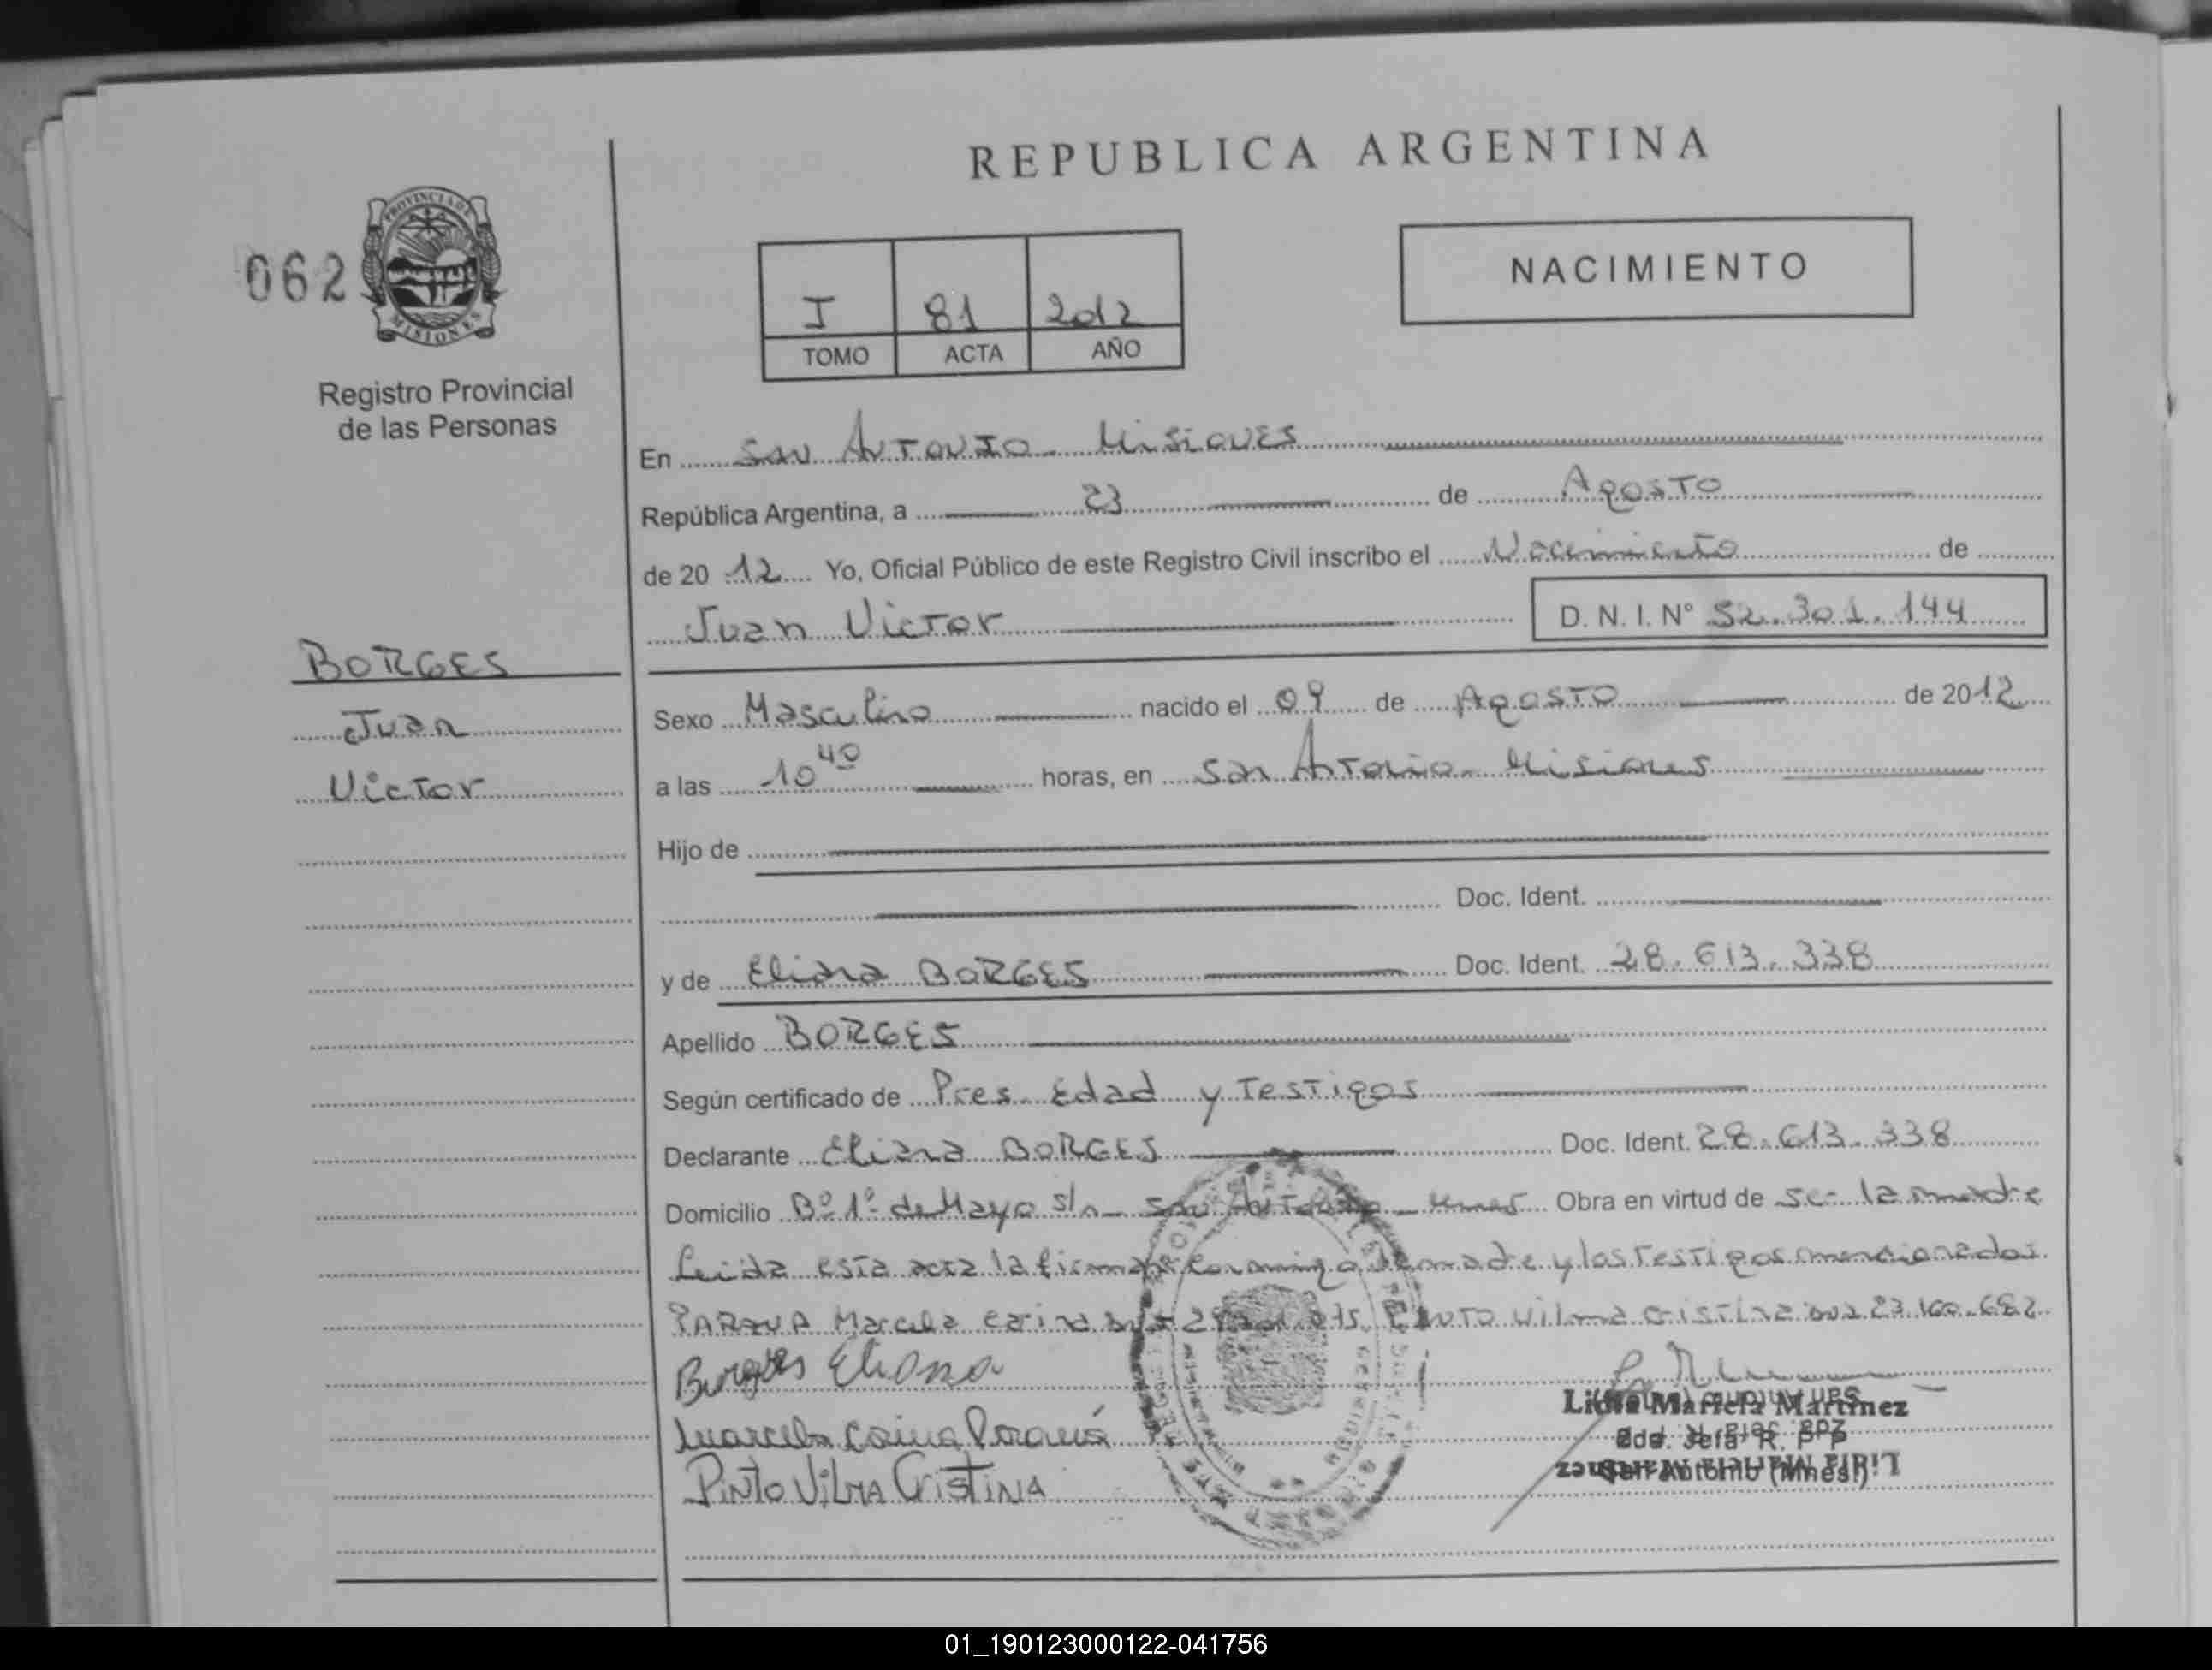 REPUBLICA ARGENTINA
062
PROVINCIA DE
MISIONES
Registro Provincial
de las Personas
I 81 2012
TOMO ACTA AÑO
NACIMIENTO
BORGES
Juan
Victor
En San Antonio - Misiones
República Argentina, a 23 de Agosto
de 2012 Yo, Oficial Público de este Registro Civil inscribo el Nacimiento de
Juan Victor D. N. I. Nº 52.301.144
Sexo Masculino nacido el 09 de Agosto de 2012
a las 10 40 horas, en San Antonio - Misiones
Hijo de
Doc. Ident.
y de Eliana BORGES Doc. Ident. 28.613.338
Apellido BORGES
Según certificado de Pres. Edad y Testigos
Declarante Eliana BORGES Doc. Ident. 28.613.338
Domicilio Bº 1º de Mayo s/n - San Antonio - Mnes Obra en virtud de ser la madre
Leida esta acta la firman conmigo la madre y los testigos mencionados
Marcela Carina PINTO Vilma Cristina DNI 23.160.682
Borges Eliana
Marcela Carina Paraná
Pinto Vilma Cristina
Lidia Mariela Martinez
2da. Jefa R. P P
San Antonio (Mnes)
01_190123000122-041756